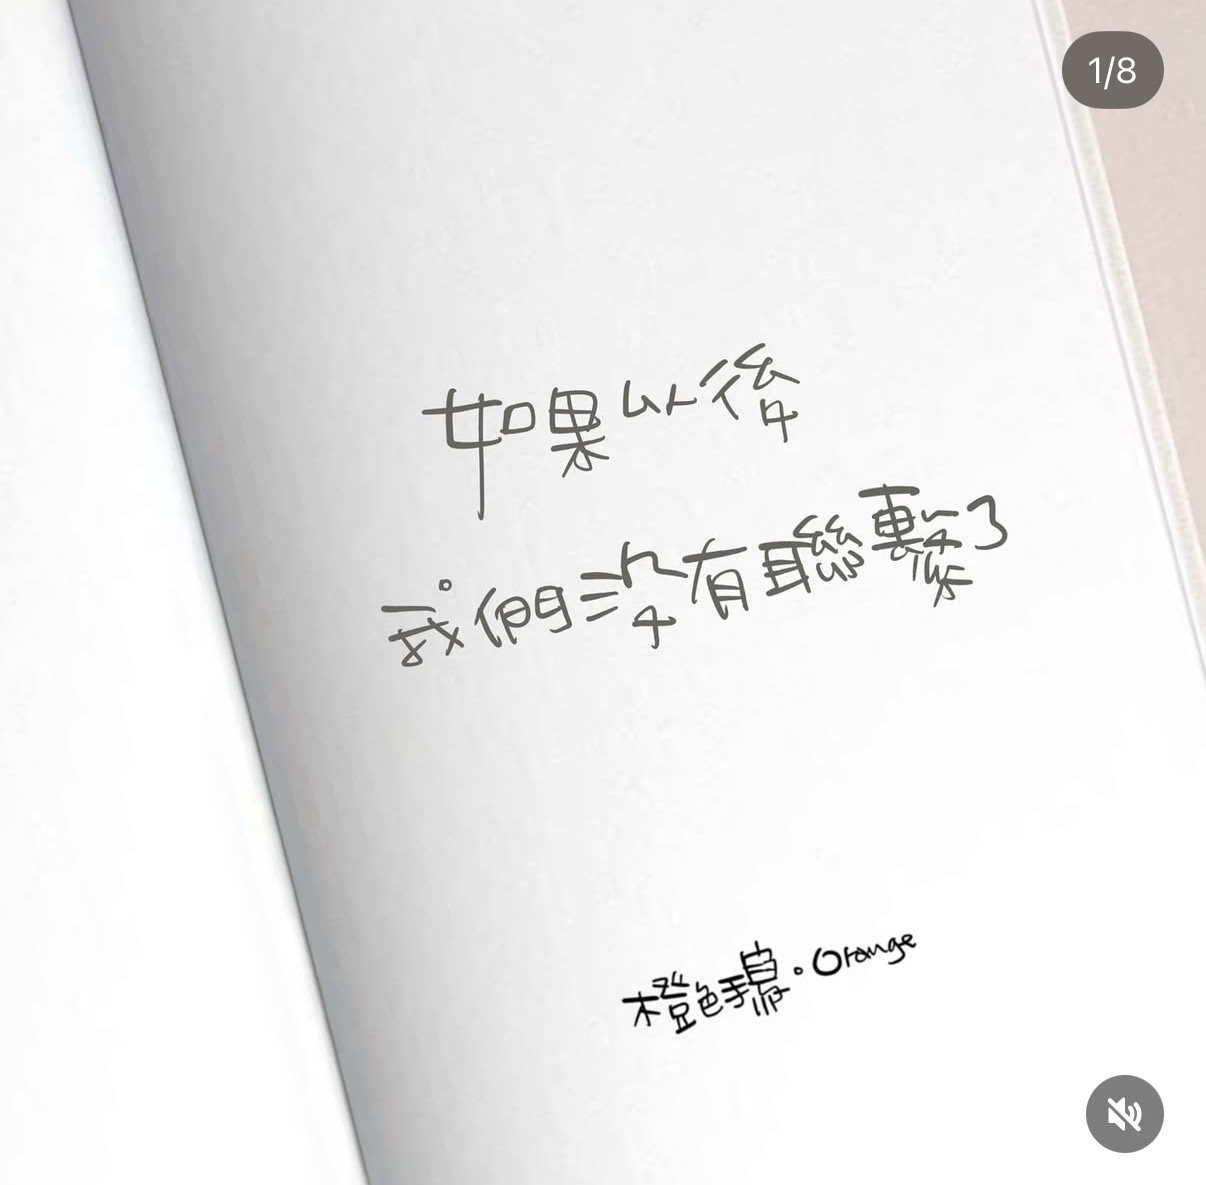 1/8
如果以後
我們沒有聯繫了
橙色手寫。Orange